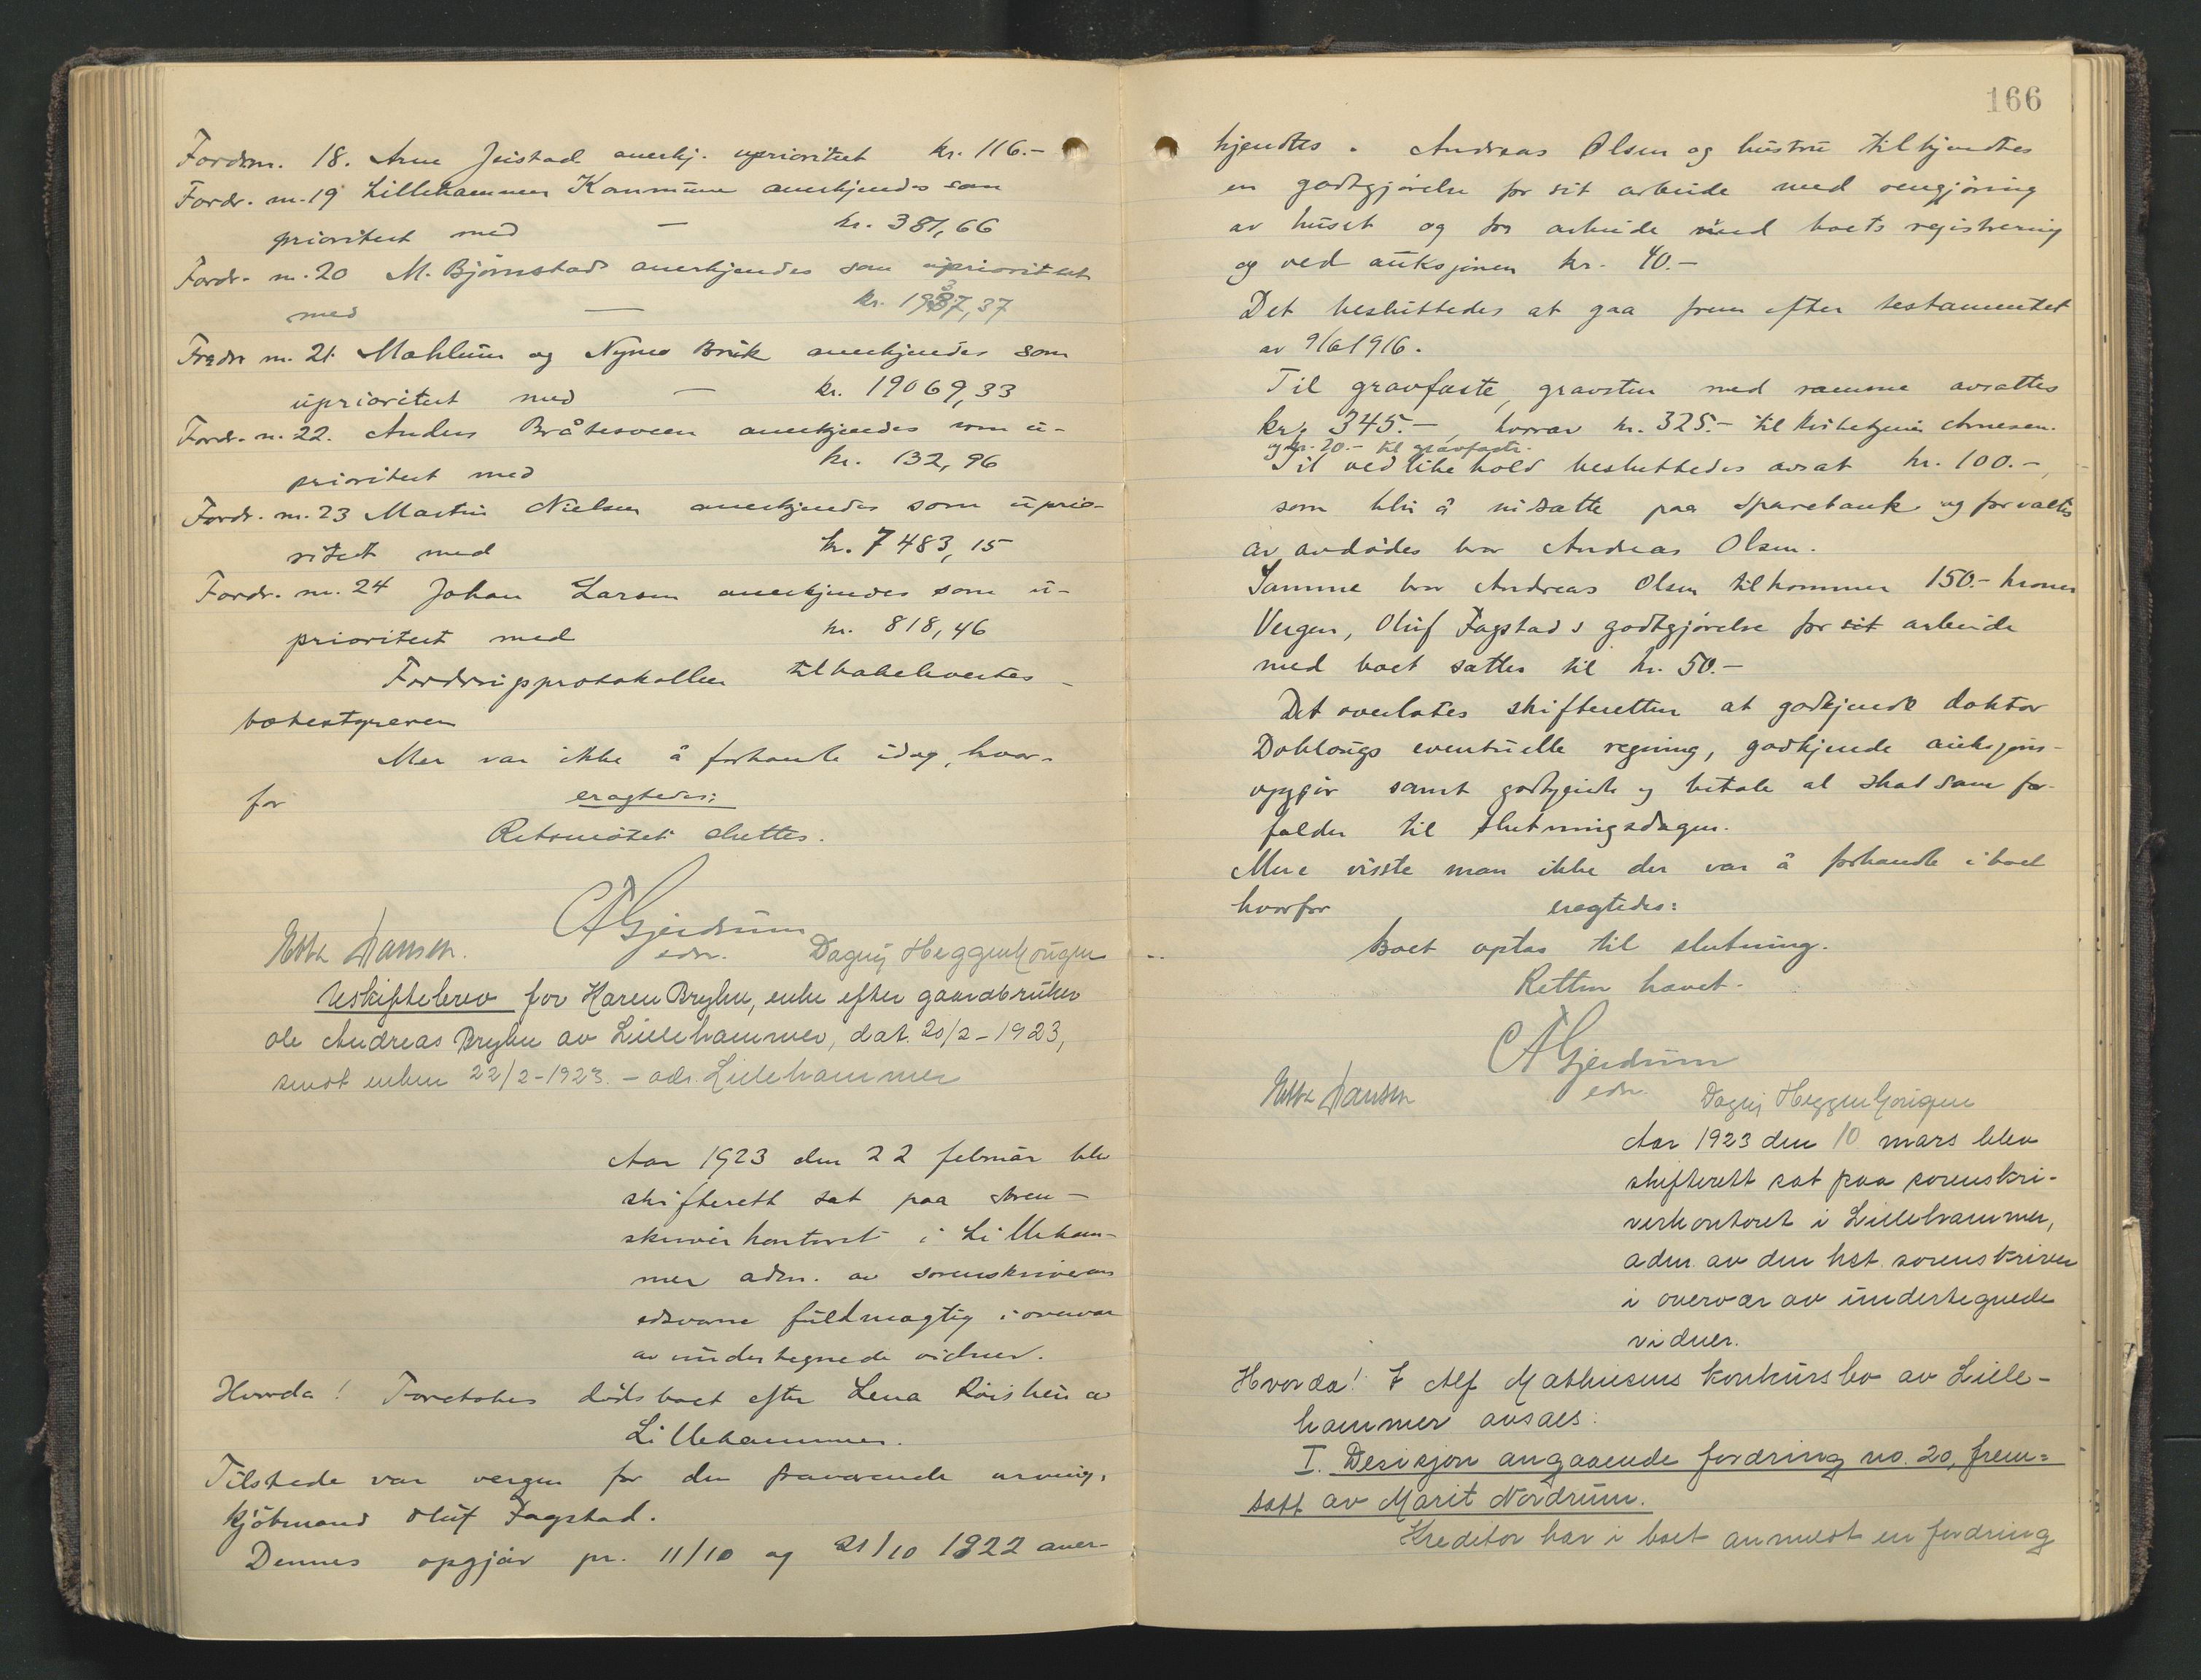 Fordr.nr. 18. Arne Jeistad anerkj. uprioritert kr. 116.-
Fordr. nr. 19 Lillehammer Kommune anerkjendes som
prioritert med — kr. 381,66
Fordr. nr. 20 M. Bjørnstad anerkjendes som uprioritert
med — kr. 37
Fordr nr. 21. Mæhlum og Nymo Bruk anerkjendes som
uprioritert med — kr. 19069,33
Fordr. n. 22. Anders Bråtesveen anerkjendes som u-
prioritert med kr. 132,96
Fordr. nr. 23 Martin Nielsen anerkjendes som uprio-
ritert med kr. 7483,15
Fordr. nr. 24 Johan Larsen anerkjendes som u-
prioritert med kr. 818,46
Fordringsprotokollen tilbakelevertes
bobestyreren
Mer var ikke å forhandle idag, hvor-
for eragtedes:
Retsmøtet sluttes.
CAGjerdrum
edv.
Hansen. Dagny Heggenhougen
Uskiftebrev for Karen Bryhn, enke efter gaardbruker
Ole Andreas Bryhn av Lillehammer, dat. 20/2-1923,
sendt enken 22/2-1923. - adr. Lillehammer
Aar 1923 den 22 februar ble
skifterett sat paa soren-
skriverkontoret i Lilleham-
mer adm. av sorenskriverens
edsvorne fuldmægtig i overvær
av undertegnede vidner.
Hvorda! Foretokes dødsboet efter Lena Røishei av
Lillehammer.
Tilstede var vergen for den fraværende arving,
kjøbmand Oluf Fagstad.
Dennes opgjør pr. 11/10 og 21/10 1922 aner-
166
kjendtes. Andreas Olsen og hustru tilkjendtes
en godtgjørelse for sit arbeide med rengjøring
av huset og for arbeide med boets registrering
og ved auksjonen kr. 40.-
Det besluttedes at gaa frem efter testamentet
av 9/6 1916.
Til gravfæste, gravsten med ramme avsattes
kr. 345.-, hvorav kr. 325.- til Arnesen.
og kr. 20.- til gravfæste.
Til vedlikehold besluttedes avsat kr. 100.-,
som blir å indsætte paa Sparebank og forvaltes
av avdødes bror Andreas Olsen.
Samme bror Andreas Olsen tilkommer 150.- kroner
Vergen, Oluf Fagstads godtgjørelse for sit arbeide
med boet sættes til kr. 50.-
Det overlates skifteretten at godkjende doktor
Doblougs eventuelle regning, godkjende auksjons-
opgjør samt godkjende og betale al skat som for-
falder til slutningsdagen.
Mere visste man ikke der var å forhandle i boet
hvorfor eragtedes:
Boet optas til slutning.
Retten hævet.
CAGjerdrum
edv.
Hansen Dagny Heggenhougen
Aar 1923 den 10 mars blev
skifterett sat paa sorenskri-
verkontoret i Lillehammer,
adm. av den kst. sorenskriver
i overvær av undertegnede
vidner.
Hvorda! I Alf Mathiesens konkursbo av Lille-
hammer avsaes:
I. Desisjon angaaende fordring no. 20, frem-
satt av Marit Nordrum.
Kreditor har i boet anmeldt en fordring